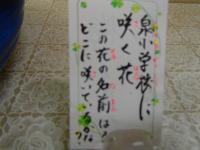 泉小学校に
咲く花
この花の名前は？
どこに咲いているかな
？